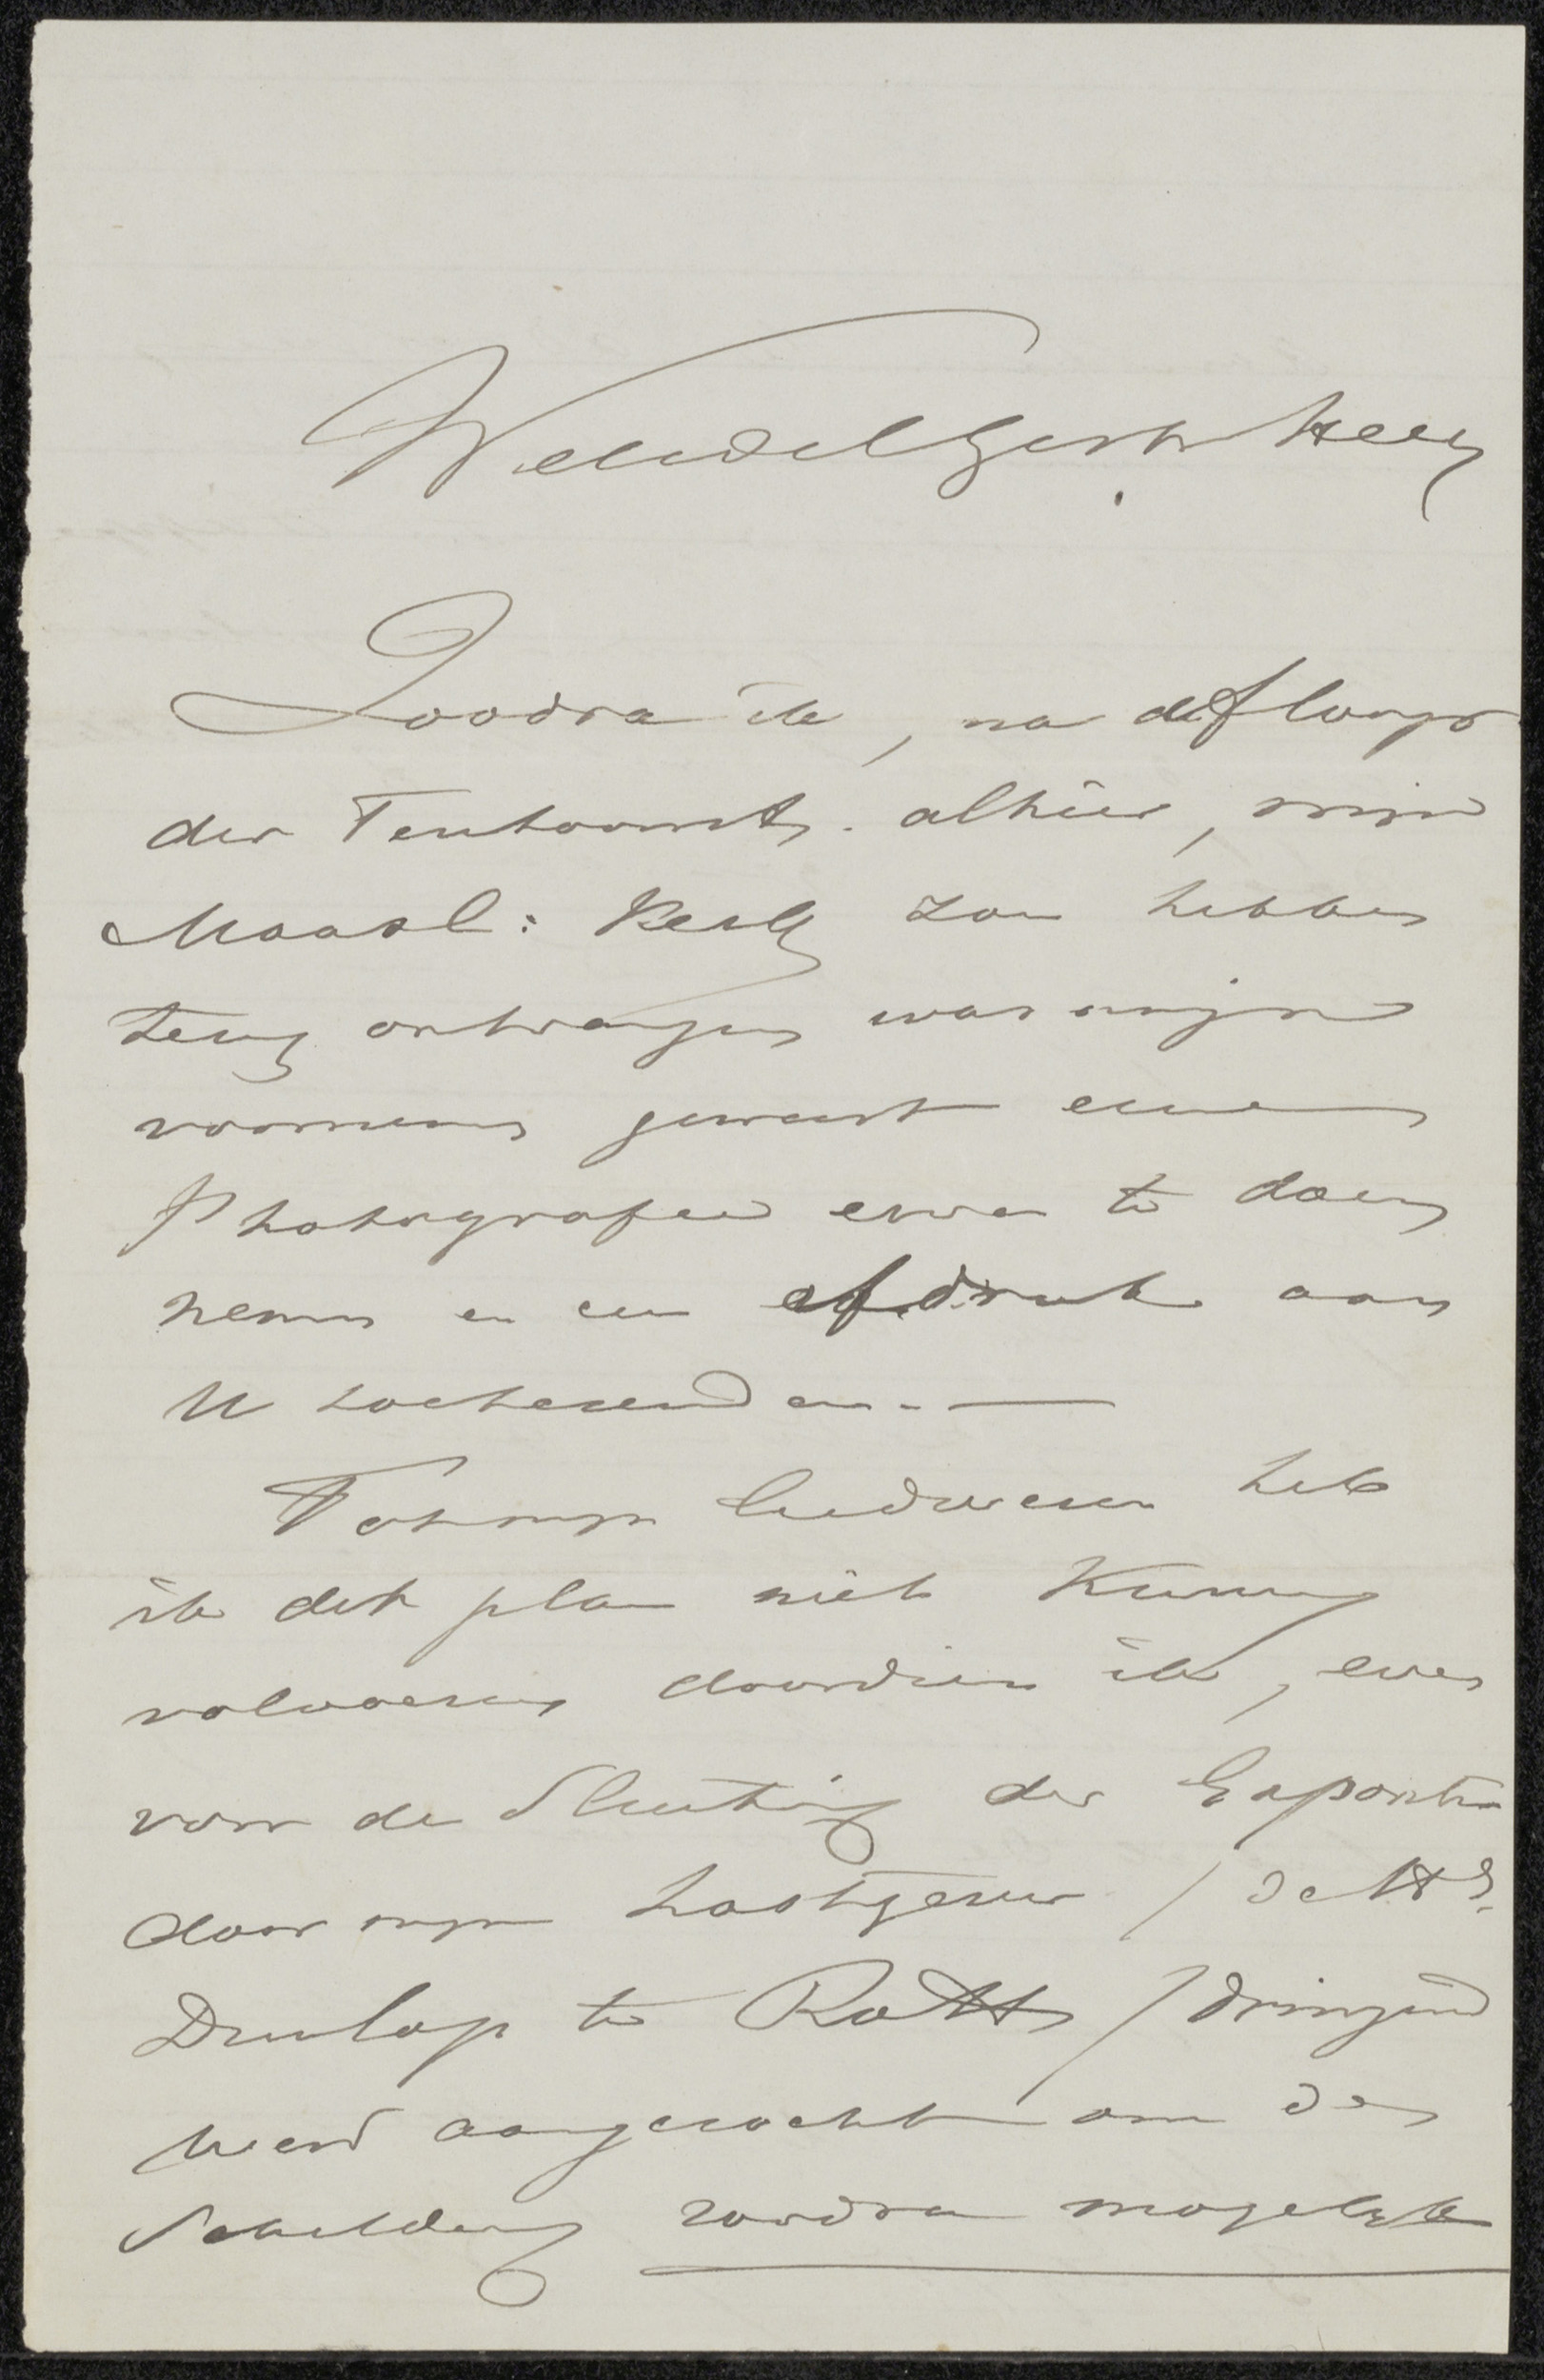 WelEdelgeb. Heer
Zoodra ik, na afloop
der Tentoonst. alhier, mijn
Maasl: Kerk zou hebben
terug ontvangen was mijn
voornemen geweest eene
Photografie ervan te doen
nemen en een afdruk aan
U toetezenden.—
Tot mijn leedwezen heb
ik dit plan niet kunnen
volvoeren doordien ik, even
voor de Sluiting der Expositie
door mijn lastgever /de Hr
Dunlop te Rott/ dringend
werd aangezocht om de
Schilderij zoodra mogelijk